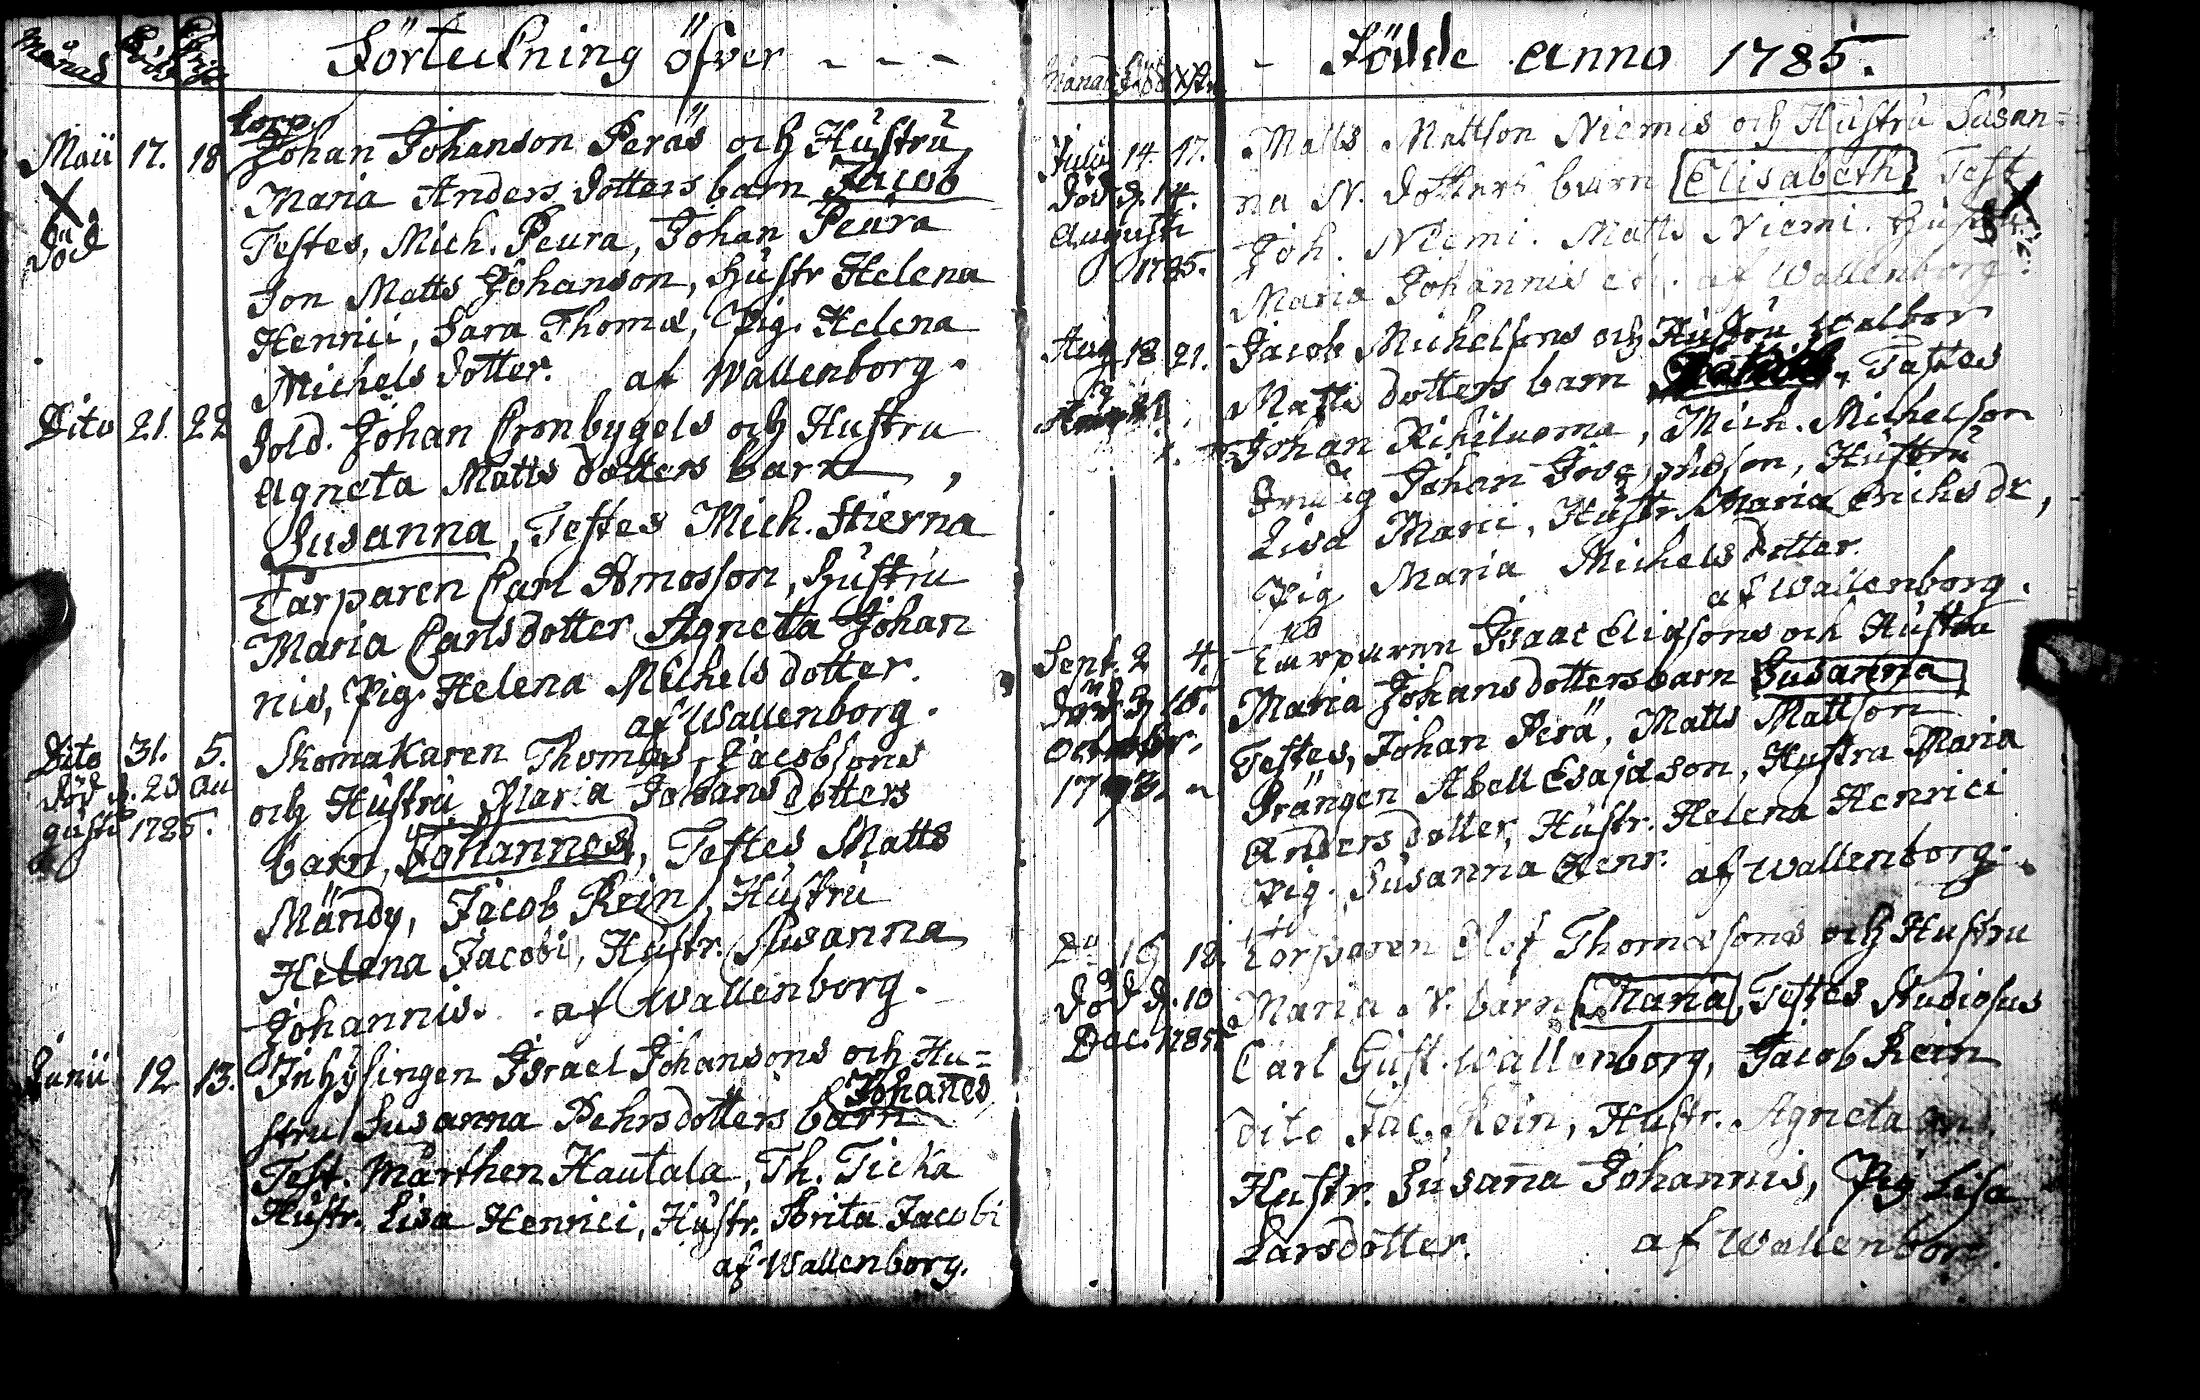 Månad Född Christ
Förteckning öfver - - -
Maii 17. 18
torp.
Johan Johanson Peräs och Hustru
Maria Anders dotters barn Jacob
Testes, Mich. Peura, Johan Peura
Jon Matts Johanson, Hustr Helena
Henrici, Sara Thomæ, Pig. Helena
Michels dotter. af Wallenborg.
X
död
Dito 21. 22
Sold. Johan Cronbygels och Hustru
Agneta Matts dotters barn,
Susanna, Testes Mich. Stierna
Torparen Carl Amosson, Hustru
Maria Carlsdotter Agneta Johan
nis, Pig. Helena Michels dotter.
af Wallenborg.
Dito 31. 5.
död d. 23 Au
gusti 1785.
Skomakaren Thomas Jacobsons
och Hustru Maria Johans dotters
barn, Johannes, Testes Matts
Mändy, Jacob Rein, Hustru
Helena Jacobi, Hustr. Susanna
Johannis. af Wallenborg.
Junii 12 13.
Inhysingen Israel Johansons och Hu=
stru Susanna Pehrsdotters barn Johanes
Test. Mårthen Hautala, Th. Ticka
Hustr. Lisa Henrici, Hustr. Brita Jacobi
af Wallenborg.
Månad Född
- Födde anno 1785.
Julii 14. 17.
död d. 14.
Augusti
1785.
Matts Mattson Niemis och Hustru Susan=
na N. dotters barn Elisabeth Test
Joh. Niemi. Matts Niemi. Hustr.
Maria Johannis af Wallenborg
X
Aug 18 21.
Jacob Michelsons och Hustru Walbor
Matts dotters barn Testes
Johan Mich. Michelson
Johan Josephsson, Hustru
Lisa Hustr. Maria Erichs dr,
Pig Maria Michels dotter.
af Wallenborg.
Sept. 2 4.
död d 15.
October.
Torparen Isaac Eliæsons och Hustru
Maria Johans dotters barn Susanna
Testes, Johan Perä, Matts Mattson
Drängen Abell Esajæson, Hustru Maria
Anders dotter, Hustr. Helena Henrici
Pig. Susanna Henr. af Wallenborg.
Do 16 18.
död d. 10
Dec. 1785
Torparen Olof Thomæsons och Hustru
Maria N. barn Maria, Testes Studiosus
Carl Gust. Wallenborg, Jacob Rein
dito Jac. Rein, Hustr. Agneta
Hustr. Susana Johannis, Pig Lisa
Larsdotter. af Wallenborg.